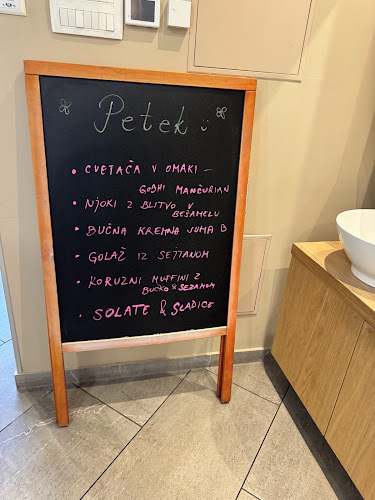 Petek
• CVETAČA V OMAKI –
GOBHI MANČURIAN
• NJOKI Z BLITVO V
BEŠAMELU
• BUČNA KREMNA JUHA
• GOLAŽ IZ SEJTANOM
• KORUZNI MUFFINI Z
BUČKO & SEZAMOM
• SOLATE & SLADICE